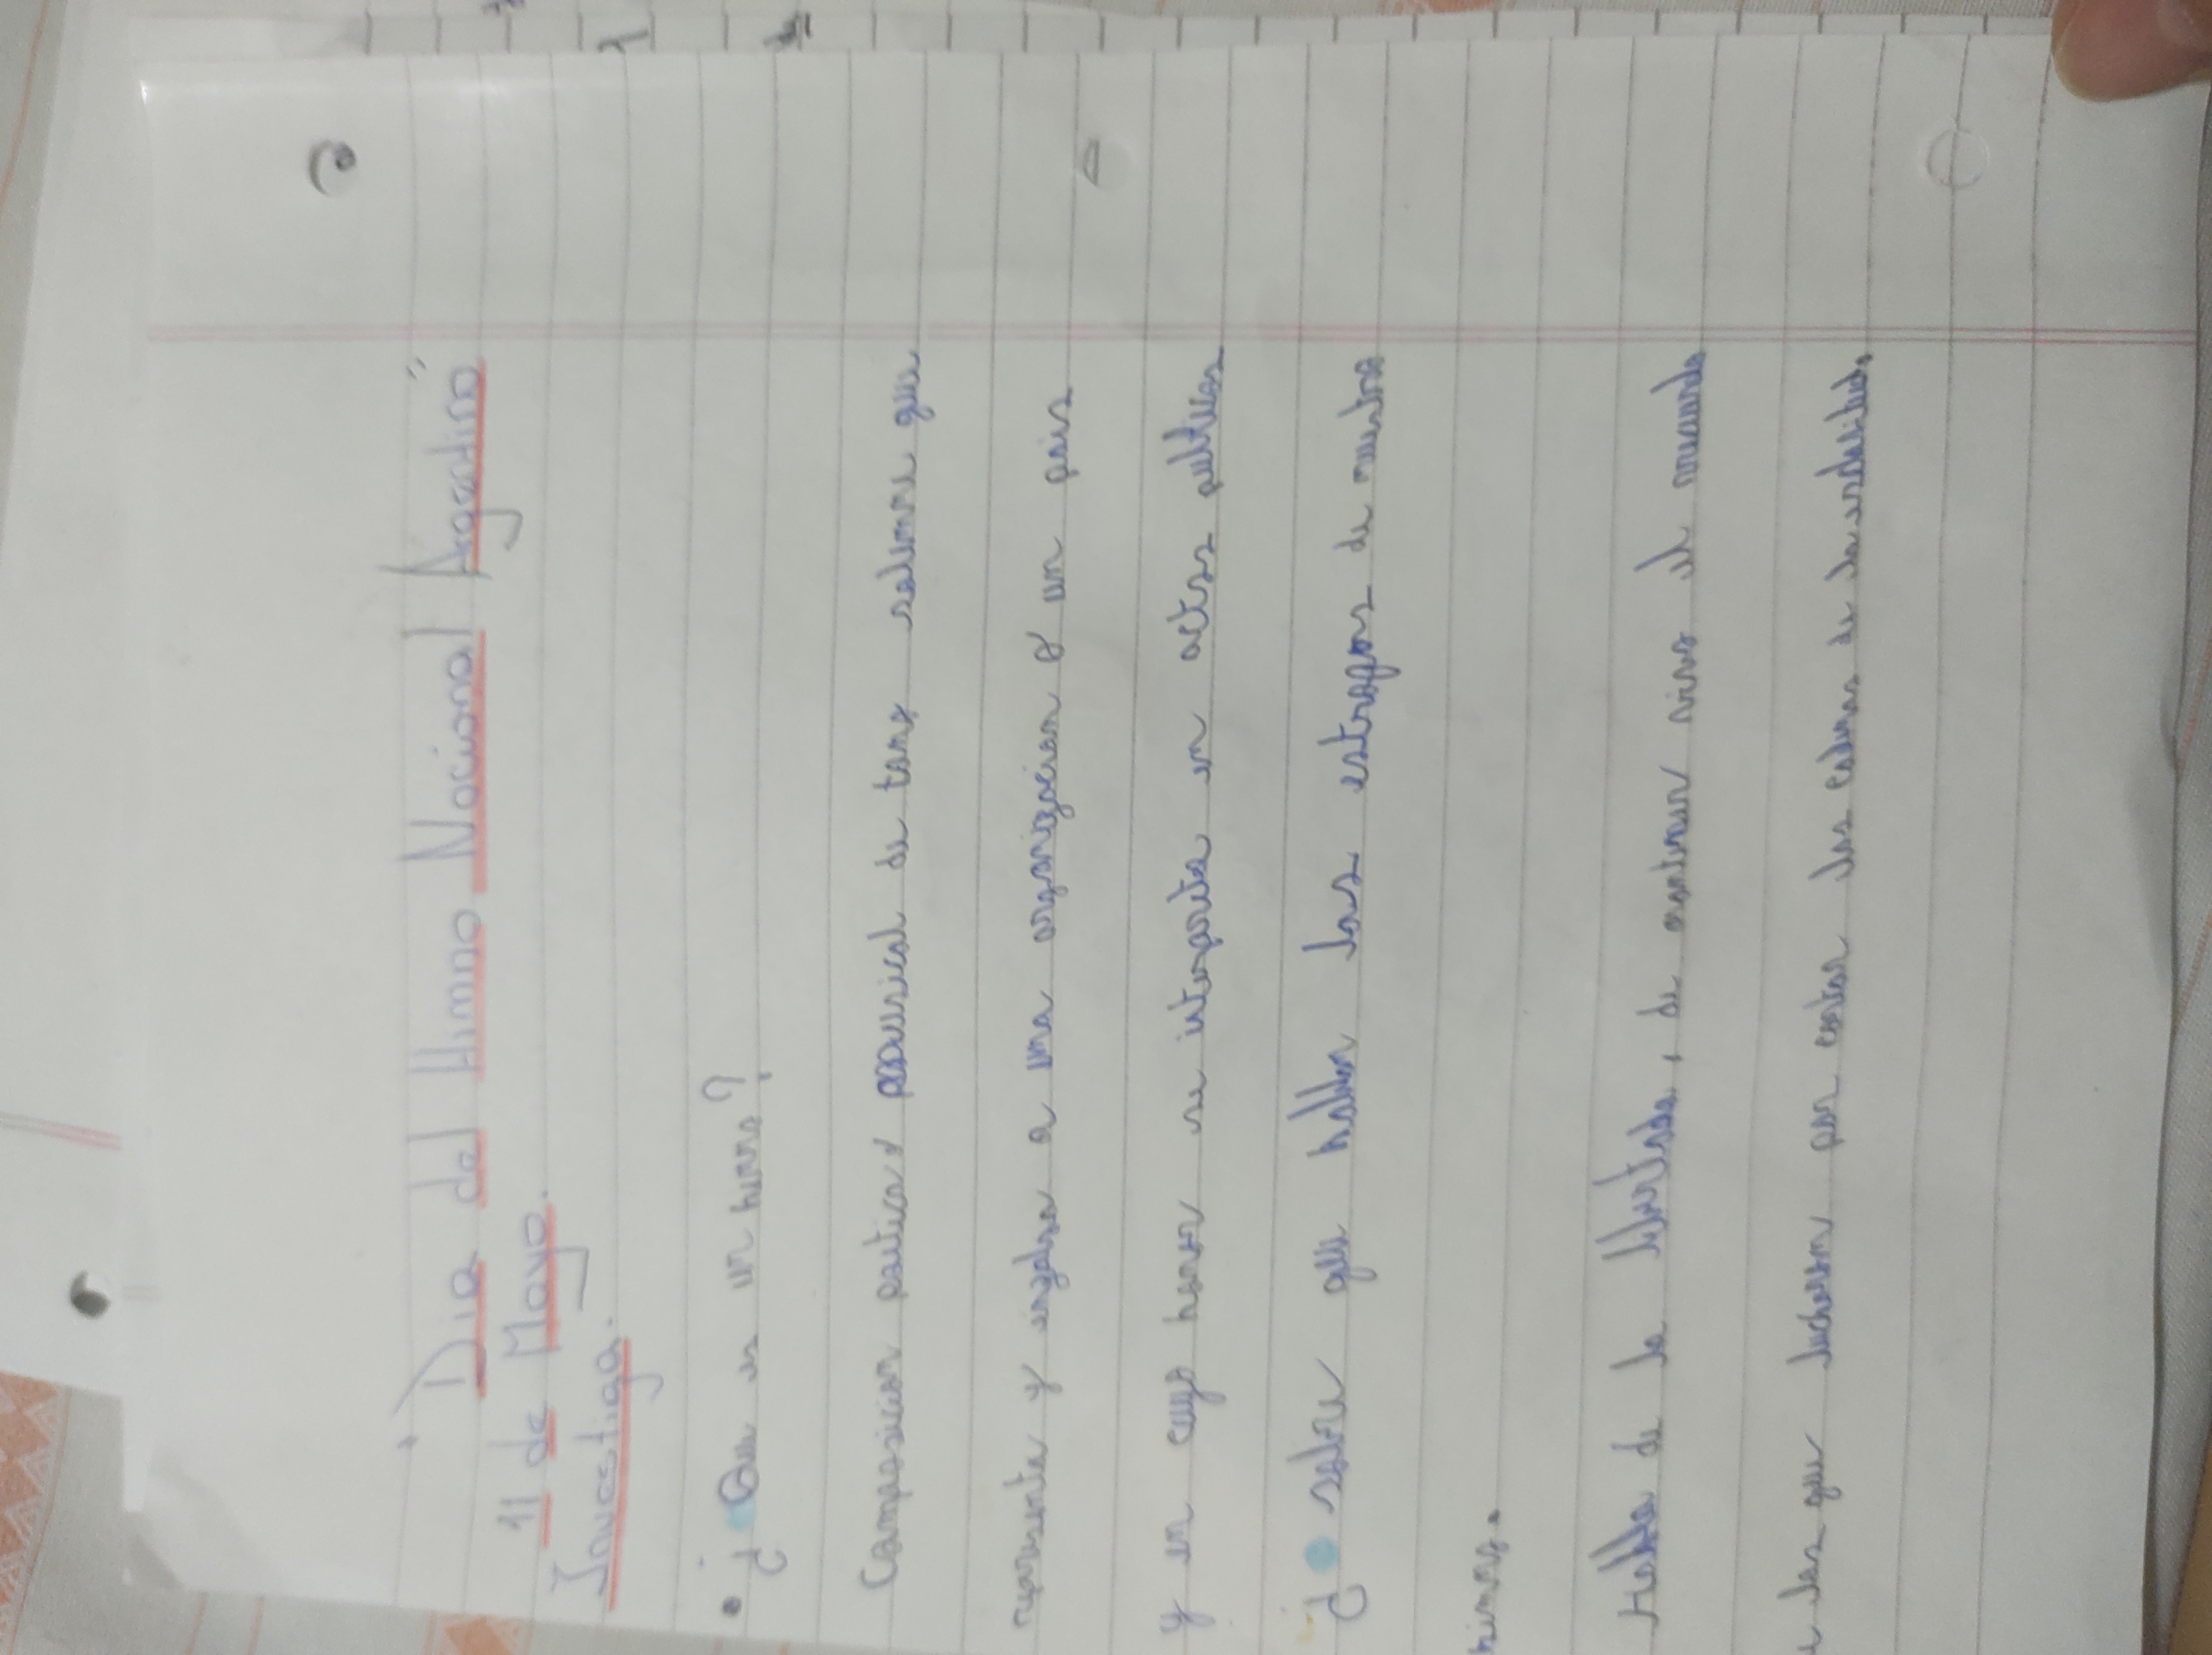 "Dia del Himno Nacional Argentino"
11 de Mayo.
Investiga.
• ¿Que es un himno?
Composicion poetica y musical de tono solemne que
representa y ensalza a una organizacion o un pais
y en cuyo honor se interpreta en actos publicos
¿ sobre que hablan las estrofas de nuestro
himno.
Habla de la libertad, de mantener vivo el recuerdo
los que lucharon por cortar las cadenas de la esclavitud.